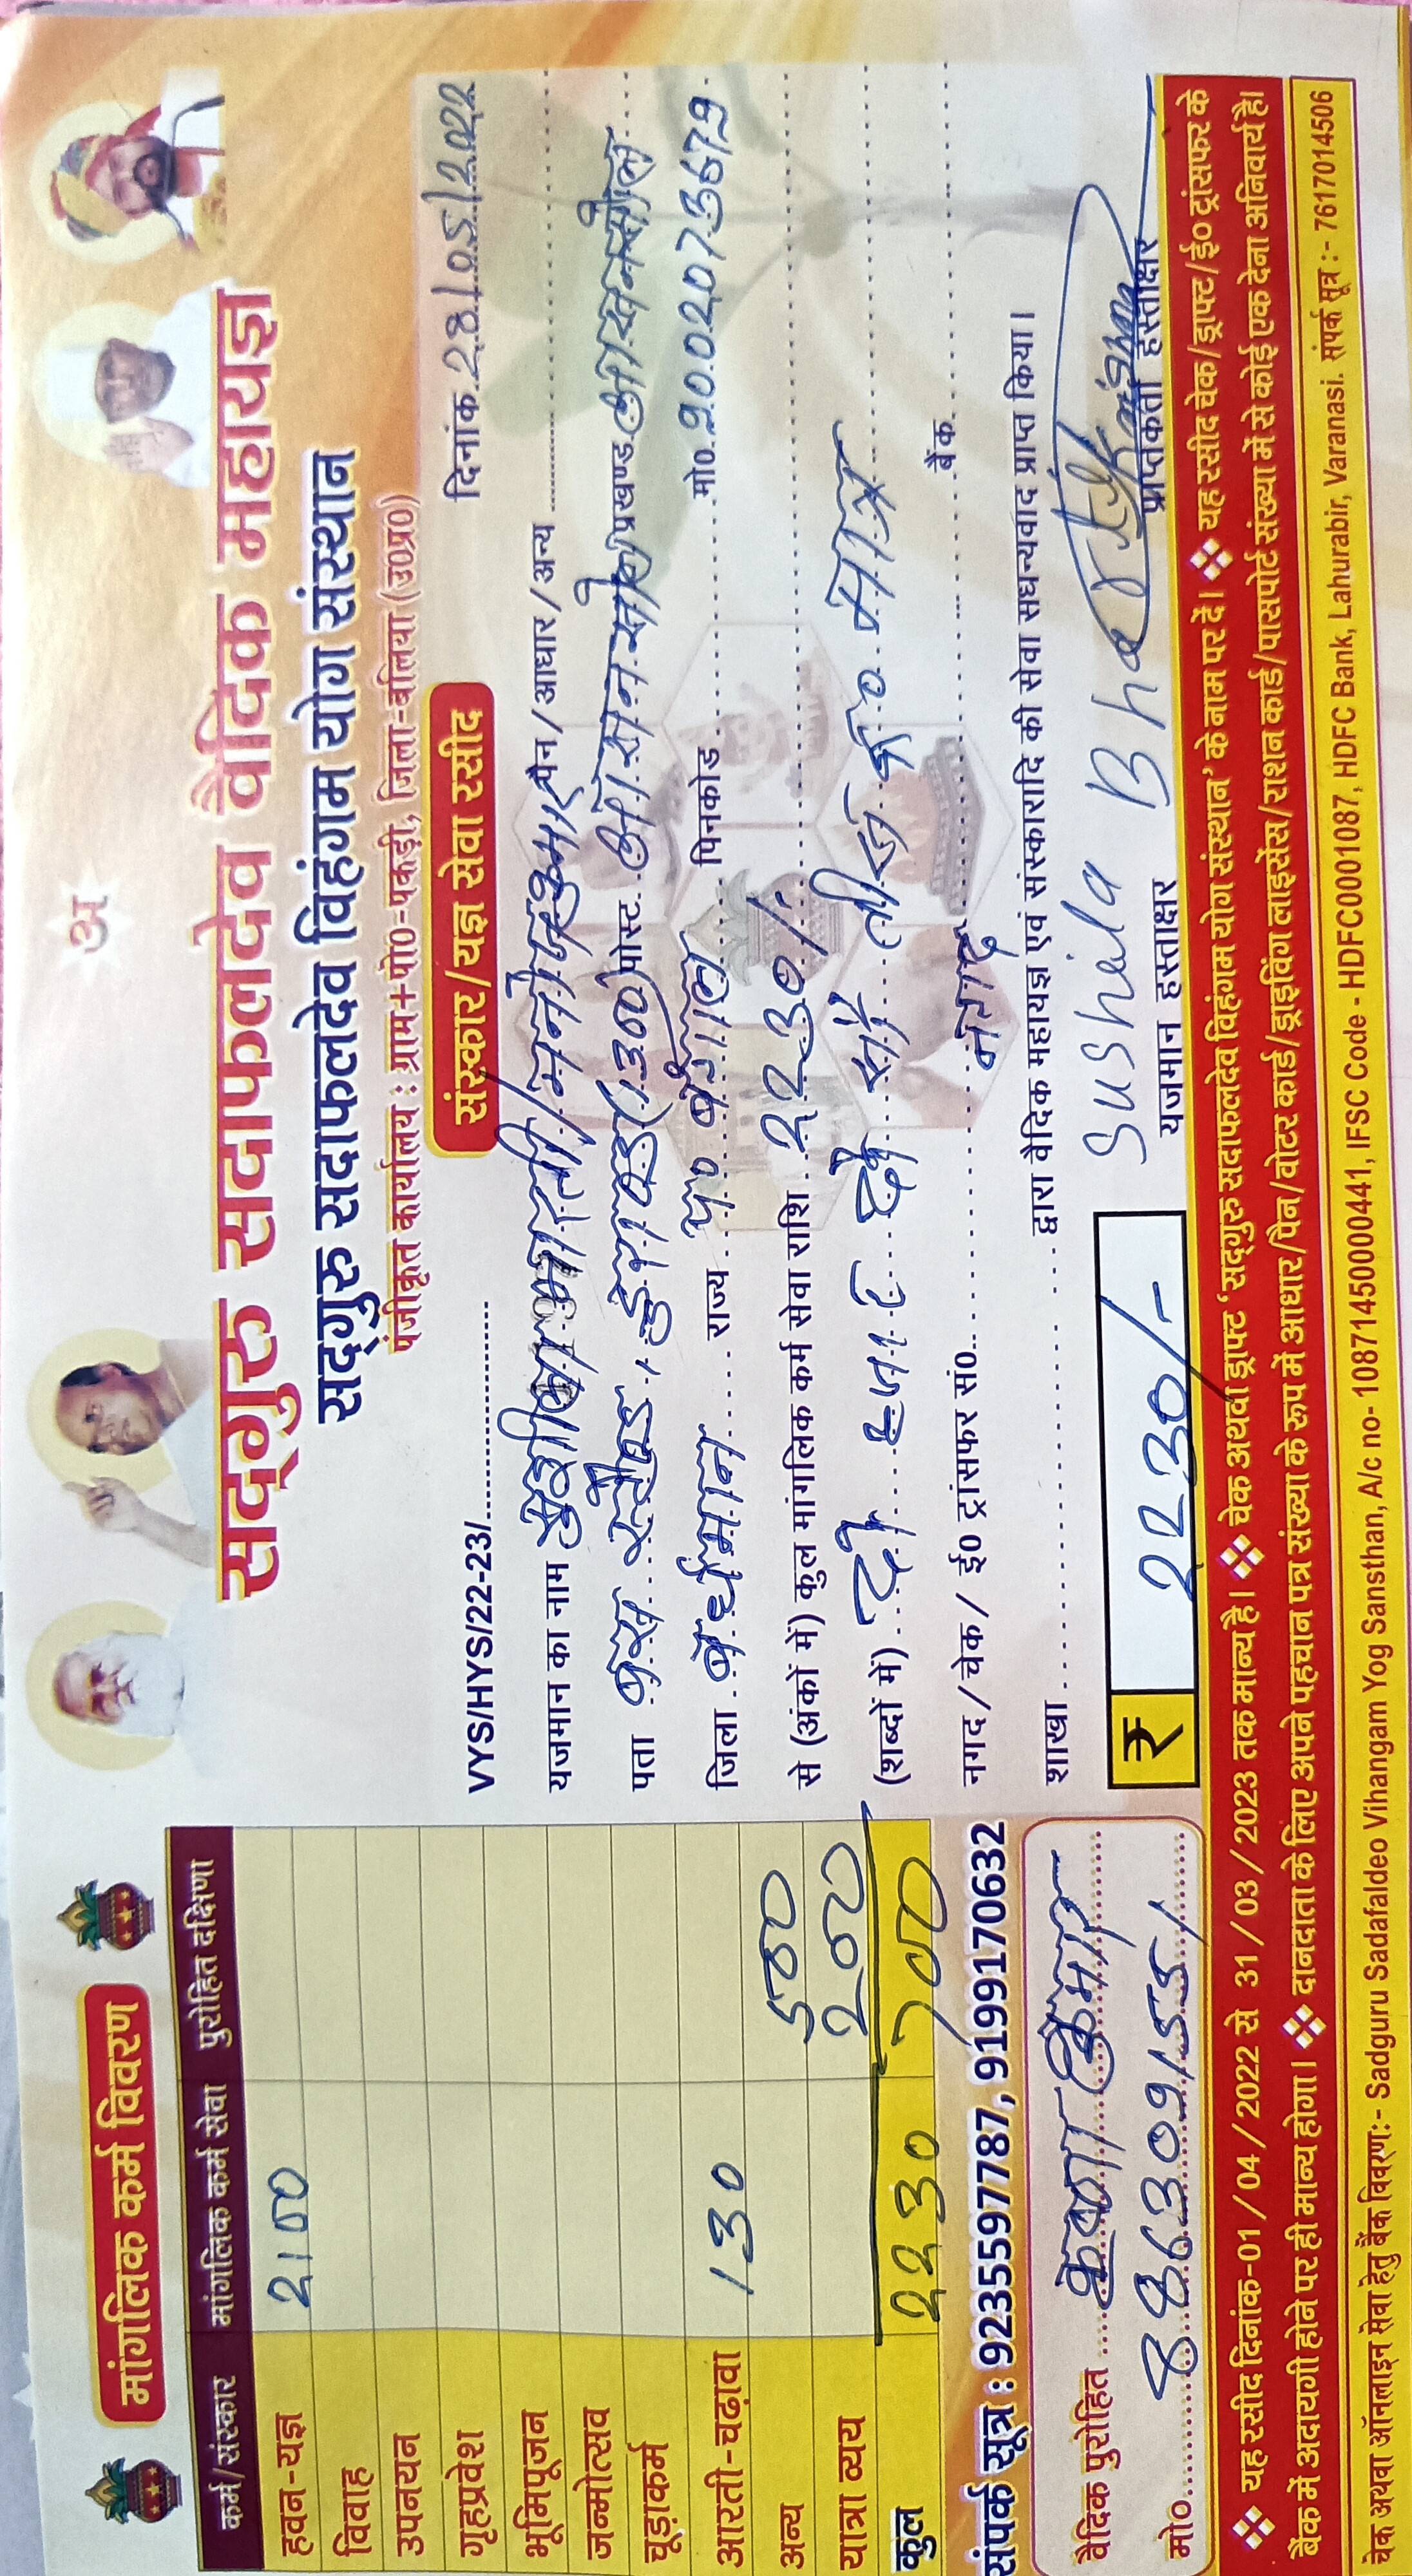 मांगलिक कर्म विवरण
कर्म/संस्कार मांगलिक कर्म सेवा पुरोहित दक्षिणा
हवन-यज्ञ 2100
विवाह
उपनयन
गृहप्रवेश
भूमिपूजन
जन्मोत्सव
चूड़ाकर्म
आरती-चढ़ावा 130
अन्य 500
यात्रा व्यय 200
कुल 2230 700
संपर्क सूत्र : 9235597787, 9199170632
वैदिक पुरोहित कृष्णा कुमार
मो०
अ
सद्गुरु सदाफलदेव वैदिक महायज्ञ
सद्गुरु सदाफलदेव विहंगम योग संस्थान
पंजीकृत कार्यालय : ग्राम+पो०-पकड़ी, जिला-बलिया (उ०प्र०)
संस्कार/यज्ञ सेवा रसीद
VYS/HYS/22-23/ दिनांक 28/05/2022
यजमान का नाम पैन/आधार/अन्य
पता पोस्ट आसनसोल प्रखण्ड आसनसोल
जिला वर्द्धमान राज्य प० बंगाल पिनकोड मो० 9002073679
से (अंको में) कुल मांगलिक कर्म सेवा राशि 2230/-
(शब्दों में) दो हजार दो सौ तीस रू० मात्र
नगद/चेक/ ई० ट्रांसफर सं० नगद बैंक
शाखा द्वारा वैदिक महायज्ञ एवं संस्कारादि की सेवा सधन्यवाद प्राप्त किया।
₹ 2230/- Sushila
यजमान हस्ताक्षर प्राप्तकर्ता हस्ताक्षर
❖ यह रसीद दिनांक-01/04/2022 से 31/03/2023 तक मान्य है। ❖ चेक अथवा ड्राफ्ट 'सद्गुरु सदाफलदेव विहंगम योग संस्थान' के नाम पर दें। ❖ यह रसीद चेक/ड्राफ्ट/ई० ट्रांसफर के
बैंक में अदायगी होने पर ही मान्य होगा। ❖ दानदाता के लिए अपने पहचान पत्र संख्या के रूप में आधार/पैन/वोटर कार्ड/ड्राइविंग लाइसेंस/राशन कार्ड/पासपोर्ट संख्या में से कोई एक देना अनिवार्य है।
चेक अथवा ऑनलाइन सेवा हेतु बैंक विवरण:- Sadguru Sadafaldeo Vihangam Yog Sansthan, A/c no- 10871450000441, IFSC Code - HDFC0001087, HDFC Bank, Lahurabir, Varanasi. संपर्क सूत्र :- 7617014506